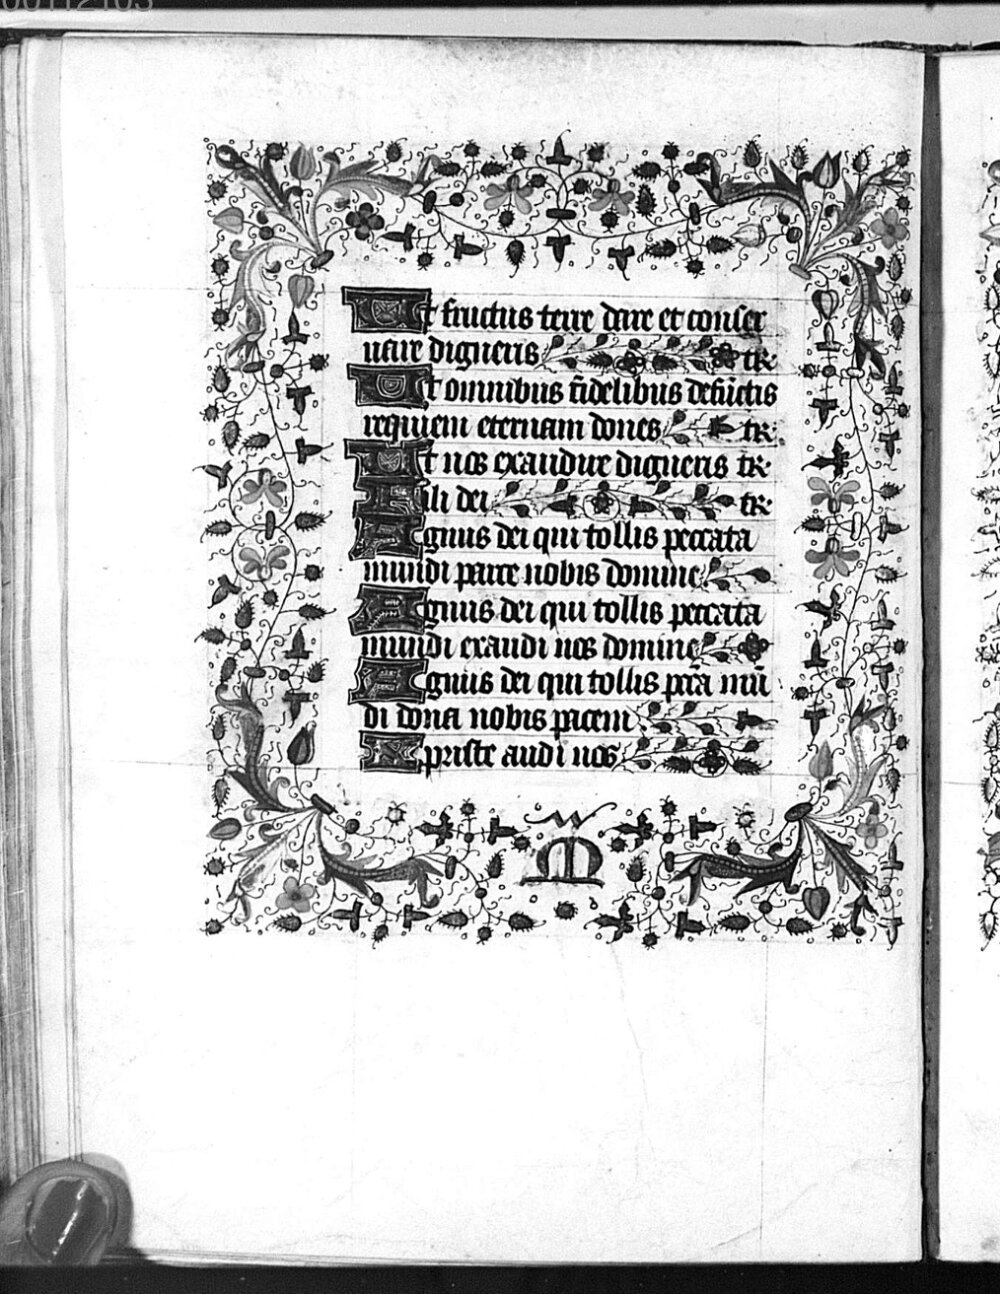 Ut fructus terre dare et conser
uare digneris tr
Ut omnibus fidelibus defūctis
requiem eternam dones tr
Ut nos exaudire digneris tr
Fili dei tr
Agnus dei qui tollis peccata
mundi parce nobis domine
Agnus dei qui tollis peccata
mundi exaudi nos domine
Agnus dei qui tollis pcc̄a mū
di dona nobis pacem
Xpriste audi nos
M